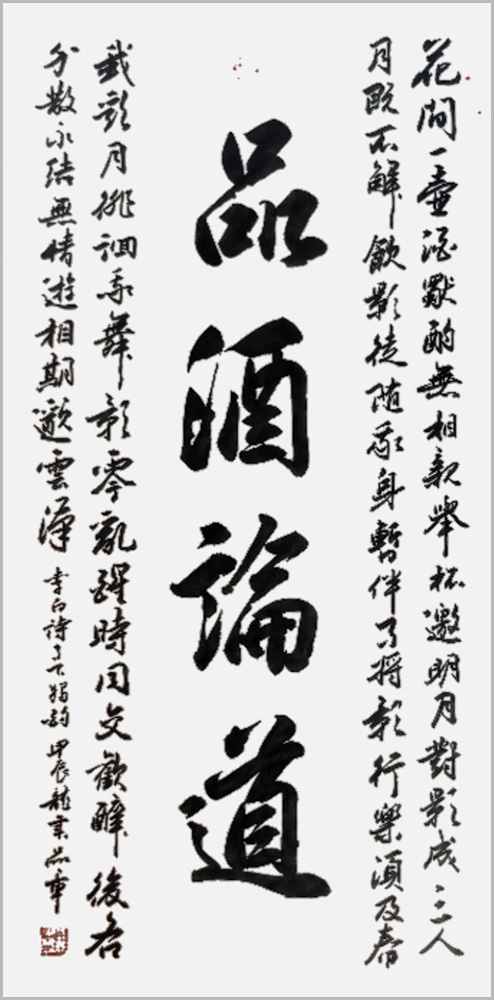 花間一壺酒獨酌無相親舉杯邀明月對影成三人
月既不解飲影徒隨我身暫伴月將影行樂須及春
品酒論道
我歌月徘徊我舞影零亂醒時同交歡醉後各
分散永結無情遊相期邈雲漢
李白詩月下獨酌 甲辰龍